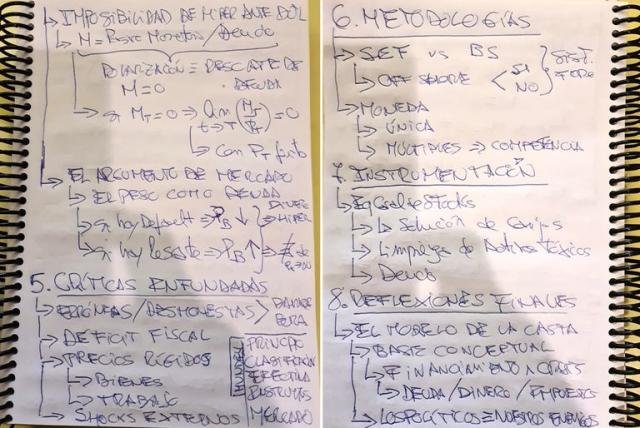 IMPOSIBILIDAD DE HIPER ANTE DOL
M = Base Monetaria / Deuda
DOLARIZACIÓN ≡ RESCATE DE DEUDA
M=0
si M_T=0 ⇒ lim t→T (M_T/P_T)=0
con P_T finito
EL ARGUMENTO DE MERCADO
EL PESO COMO DEUDA
si hay Default ⇒ P_B ↓
HIPER
si hay Rescate ⇒ P_B ↑
5. CRÍTICAS ENFUNDADAS
ERRÓNEAS / DESHONESTAS
DÉFICIT FISCAL
PRECIOS RÍGIDOS
BIENES
TRABAJO
SHOCKS EXTERNOS
MUNDELL
PRINCIPIO
CLASIFICACIÓN
EFECTIVA
INSTRUMTOS
MERCADO
6. METODOLOGÍAS
SEF vs BS
OFF SHORE < SI NO
SIST. FORO
MONEDA
ÚNICA
MÚLTIPLES ⇒ COMPETENCIA
7. INSTRUMENTACIÓN
Eq Salie Stocks
Solución de Leliqs
Limpieza de Activos Tóxicos
Deuda
8. REFLEXIONES FINALES
EL MODELO DE LA CASTA
BASE CONCEPTUAL
FINANCIAMIENTO
DEUDA / DINERO / IMPUESTOS
LOS POLÍTICOS ≡ NUESTROS ENEMIGOS